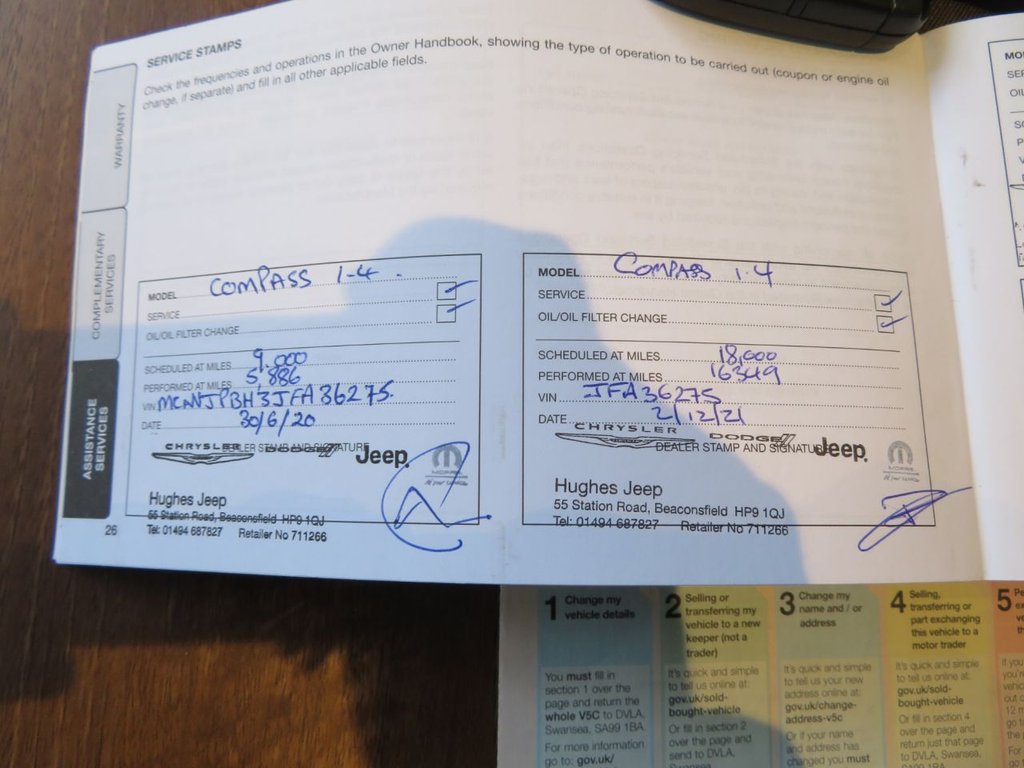 SERVICE STAMPS
Check the frequencies and operations in the Owner Handbook, showing the type of operation to be carried out (coupon or engine oil
change, if separate) and fill in all other applicable fields.
WARRANTY
COMPLEMENTARY
SERVICES
ASSISTANCE
SERVICES
MODEL COMPASS 1-4.
SERVICE
OIL/OIL FILTER CHANGE
SCHEDULED AT MILES 9.000
PERFORMED AT MILES 5,886
VIN MCANJPBH3JFA36275.
DATE 30/6/20
CHRYSLER DODGE Jeep
DEALER STAMP AND SIGNATURE
MOPAR
Hughes Jeep
55 Station Road, Beaconsfield HP9 1QJ
Tel: 01494 687827 Retailer No 711266
26
MODEL COMPASS 1.4
SERVICE
OIL/OIL FILTER CHANGE
SCHEDULED AT MILES 18,000
PERFORMED AT MILES 16349
VIN JFA36275
DATE 2/12/21
CHRYSLER DODGE Jeep
DEALER STAMP AND SIGNATURE
MOPAR
Hughes Jeep
55 Station Road, Beaconsfield HP9 1QJ
Tel: 01494 687827 Retailer No 711266
1 Change my
vehicle details
You must fill in
section 1 over the
page and return the
whole V5C to DVLA,
Swansea, SA99 1BA.
For more information
go to: gov.uk/
2 Selling or
transferring my
vehicle to a new
keeper (not a
trader)
It's quick and simple
to tell us online at:
gov.uk/sold-
bought-vehicle
Or fill in section 2
over the page and
send to DVLA,
3 Change my
name and / or
address
It's quick and simple
to tell us your new
address online at:
gov.uk/change-
address-v5c
Or if your name
and address has
changed you must
4 Selling,
transferring or
part exchanging
this vehicle to a
motor trader
It's quick and simple
to tell us online at:
gov.uk/sold-
bought-vehicle
Or fill in section 4
over the page and
return just that page
to DVLA, Swansea,
SA99 1BA
5